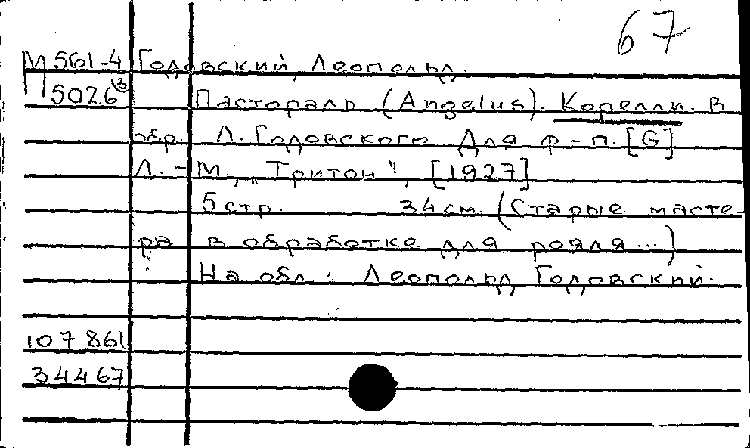 67
М 561-4 Годовский, Леопольд.
5026 Пастораль (Angelus). Корелли. В
обр. Л. Годовского. Для ф-п. [G]
Л.-М., „Тритон“, [1927]
5 стр. 34 см. (Старые масте-
ра в обработке для рояля...)
На обл.: Леопольд Годовский.
107861
34467